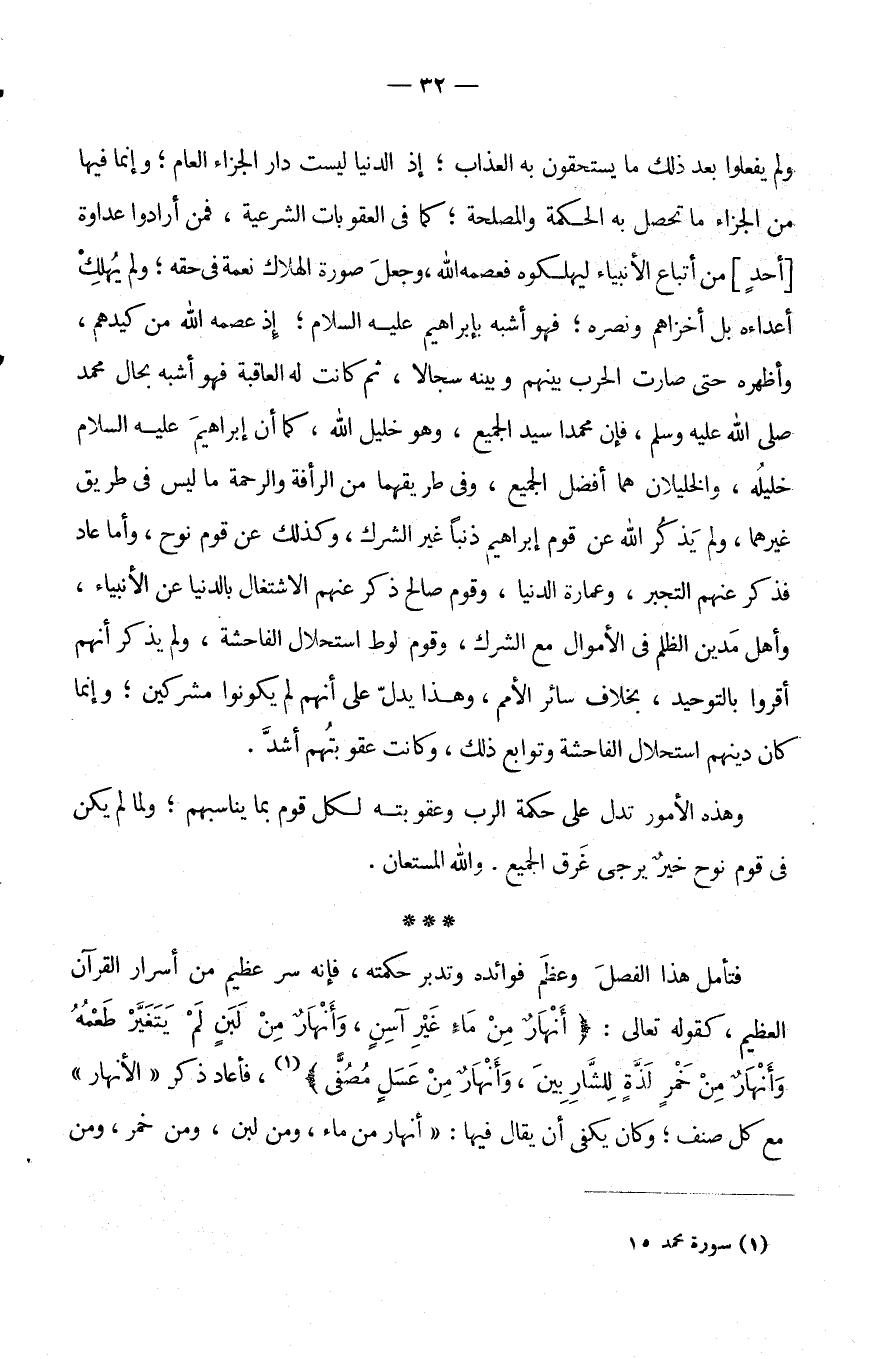 — ٣٢ —
ولم يفعلوا بعد ذلك ما يستحقون به العذاب ؛ إذ الدنيا ليست دار الجزاء العام ؛ وإنما فيها
من الجزاء ما تحصل به الحكمة والمصلحة ؛ كما فى العقوبات الشرعية ، فمن أرادوا عداوة
[ أحدٍ ] من أتباع الأنبياء ليهلكوه فعصمه الله ، وجعلَ صورة الهلاك نعمة فى حقه ؛ ولم يُهلِكْ
أعداءه بل أخزاهم ونصره ؛ فهو أشبه بإبراهيم عليه السلام ؛ إِذ عصمه الله من كيدهم ،
وأظهره حتى صارت الحرب بينهم وبينه سجالا ، ثم كانت له العاقبة فهو أشبه بحال محمد
صلى الله عليه وسلم ، فإن محمدا سيد الجميع ، وهو خليل الله ، كما أن إبراهيمَ عليه السلام
خليلُه ، والخليلان هما أفضل الجميع ، وفى طريقهما من الرأفة والرحمة ما ليس فى طريق
غيرهما ، ولم يَذكُر الله عن قوم إبراهيم ذنباً غير الشرك ، وكذلك عن قوم نوح ، وأما عاد
فذكر عنهم التجبر ، وعمارة الدنيا ، وقوم صالح ذكر عنهم الاشتغال بالدنيا عن الأنبياء ،
وأهل مَدين الظلم فى الأموال مع الشرك ، وقوم لوط استحلال الفاحشة ، ولم يذكر أنهم
أقروا بالتوحيد ، بخلاف سائر الأمم ، وهذا يدلّ على أنهم لم يكونوا مشركين ؛ وإنما
كان دينهم استحلال الفاحشة وتوابع ذلك ، وكانت عقوبتُهم أشدَّ .
وهذه الأمور تدل على حكمة الرب وعقوبته لكل قوم بما يناسبهم ؛ ولما لم يكن
فى قوم نوح خيرٌ يرجى غَرق الجميع . والله المستعان .
***
فتأمل هذا الفصلَ وعظَم فوائده وتدبر حكمته ، فإنه سر عظيم من أسرار القرآن
العظيم ، كقوله تعالى : ﴿ أَنْهَارٌ مِنْ مَاءٍ غَيْرِ آسِنٍ ، وَأَنْهَارٌ مِنْ لَبَنٍ لَمْ يَتَغَيَّرْ طَعْمُهُ
وَأَنْهَارٌ مِنْ خَمْرٍ لَذَّةٍ لِلشَّارِبِينَ ، وَأَنْهَارٌ مِنْ عَسَلٍ مُصُفًّى ﴾(١) ، فأعاد ذكر « الأنهار »
مع كل صنف ؛ وكان يكفى أن يقال فيها : « أنهار من ماء ، ومن لبن ، ومن خمر ، ومن
(١) سورة محمد ١٥